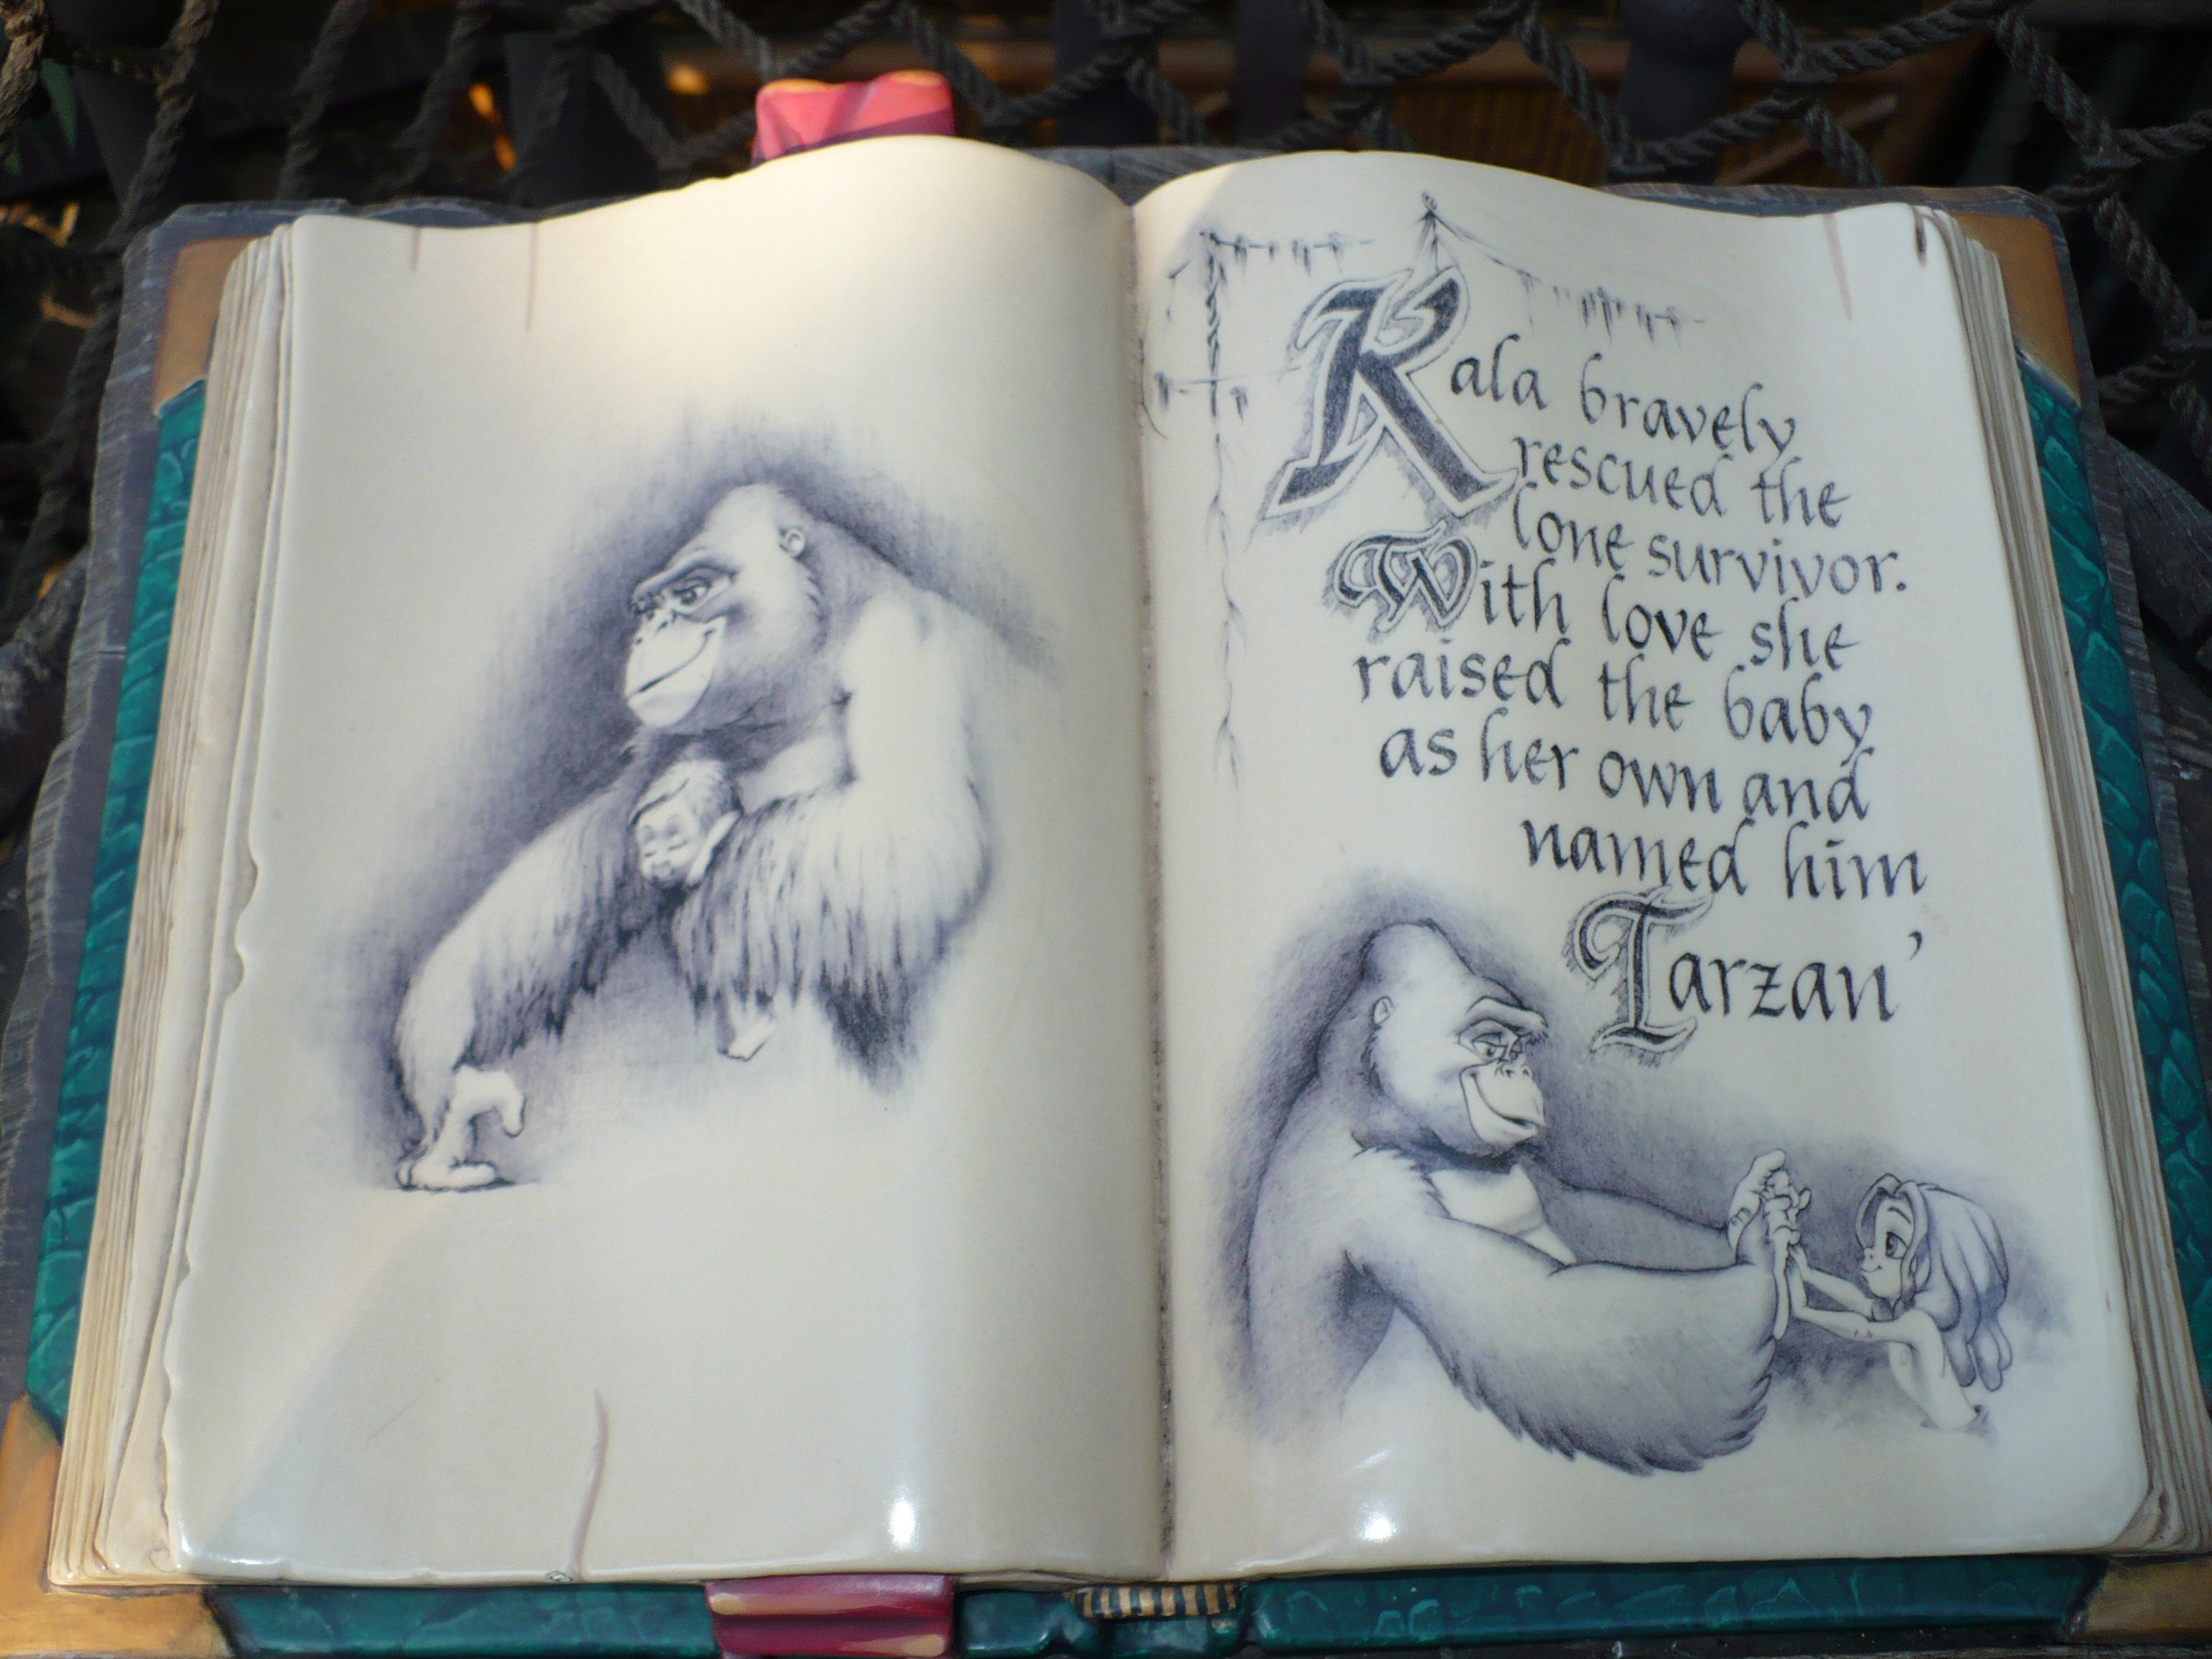 Kala bravely
rescued the
lone survivor.
With love she
raised the baby
as her own and
named him
Tarzan’